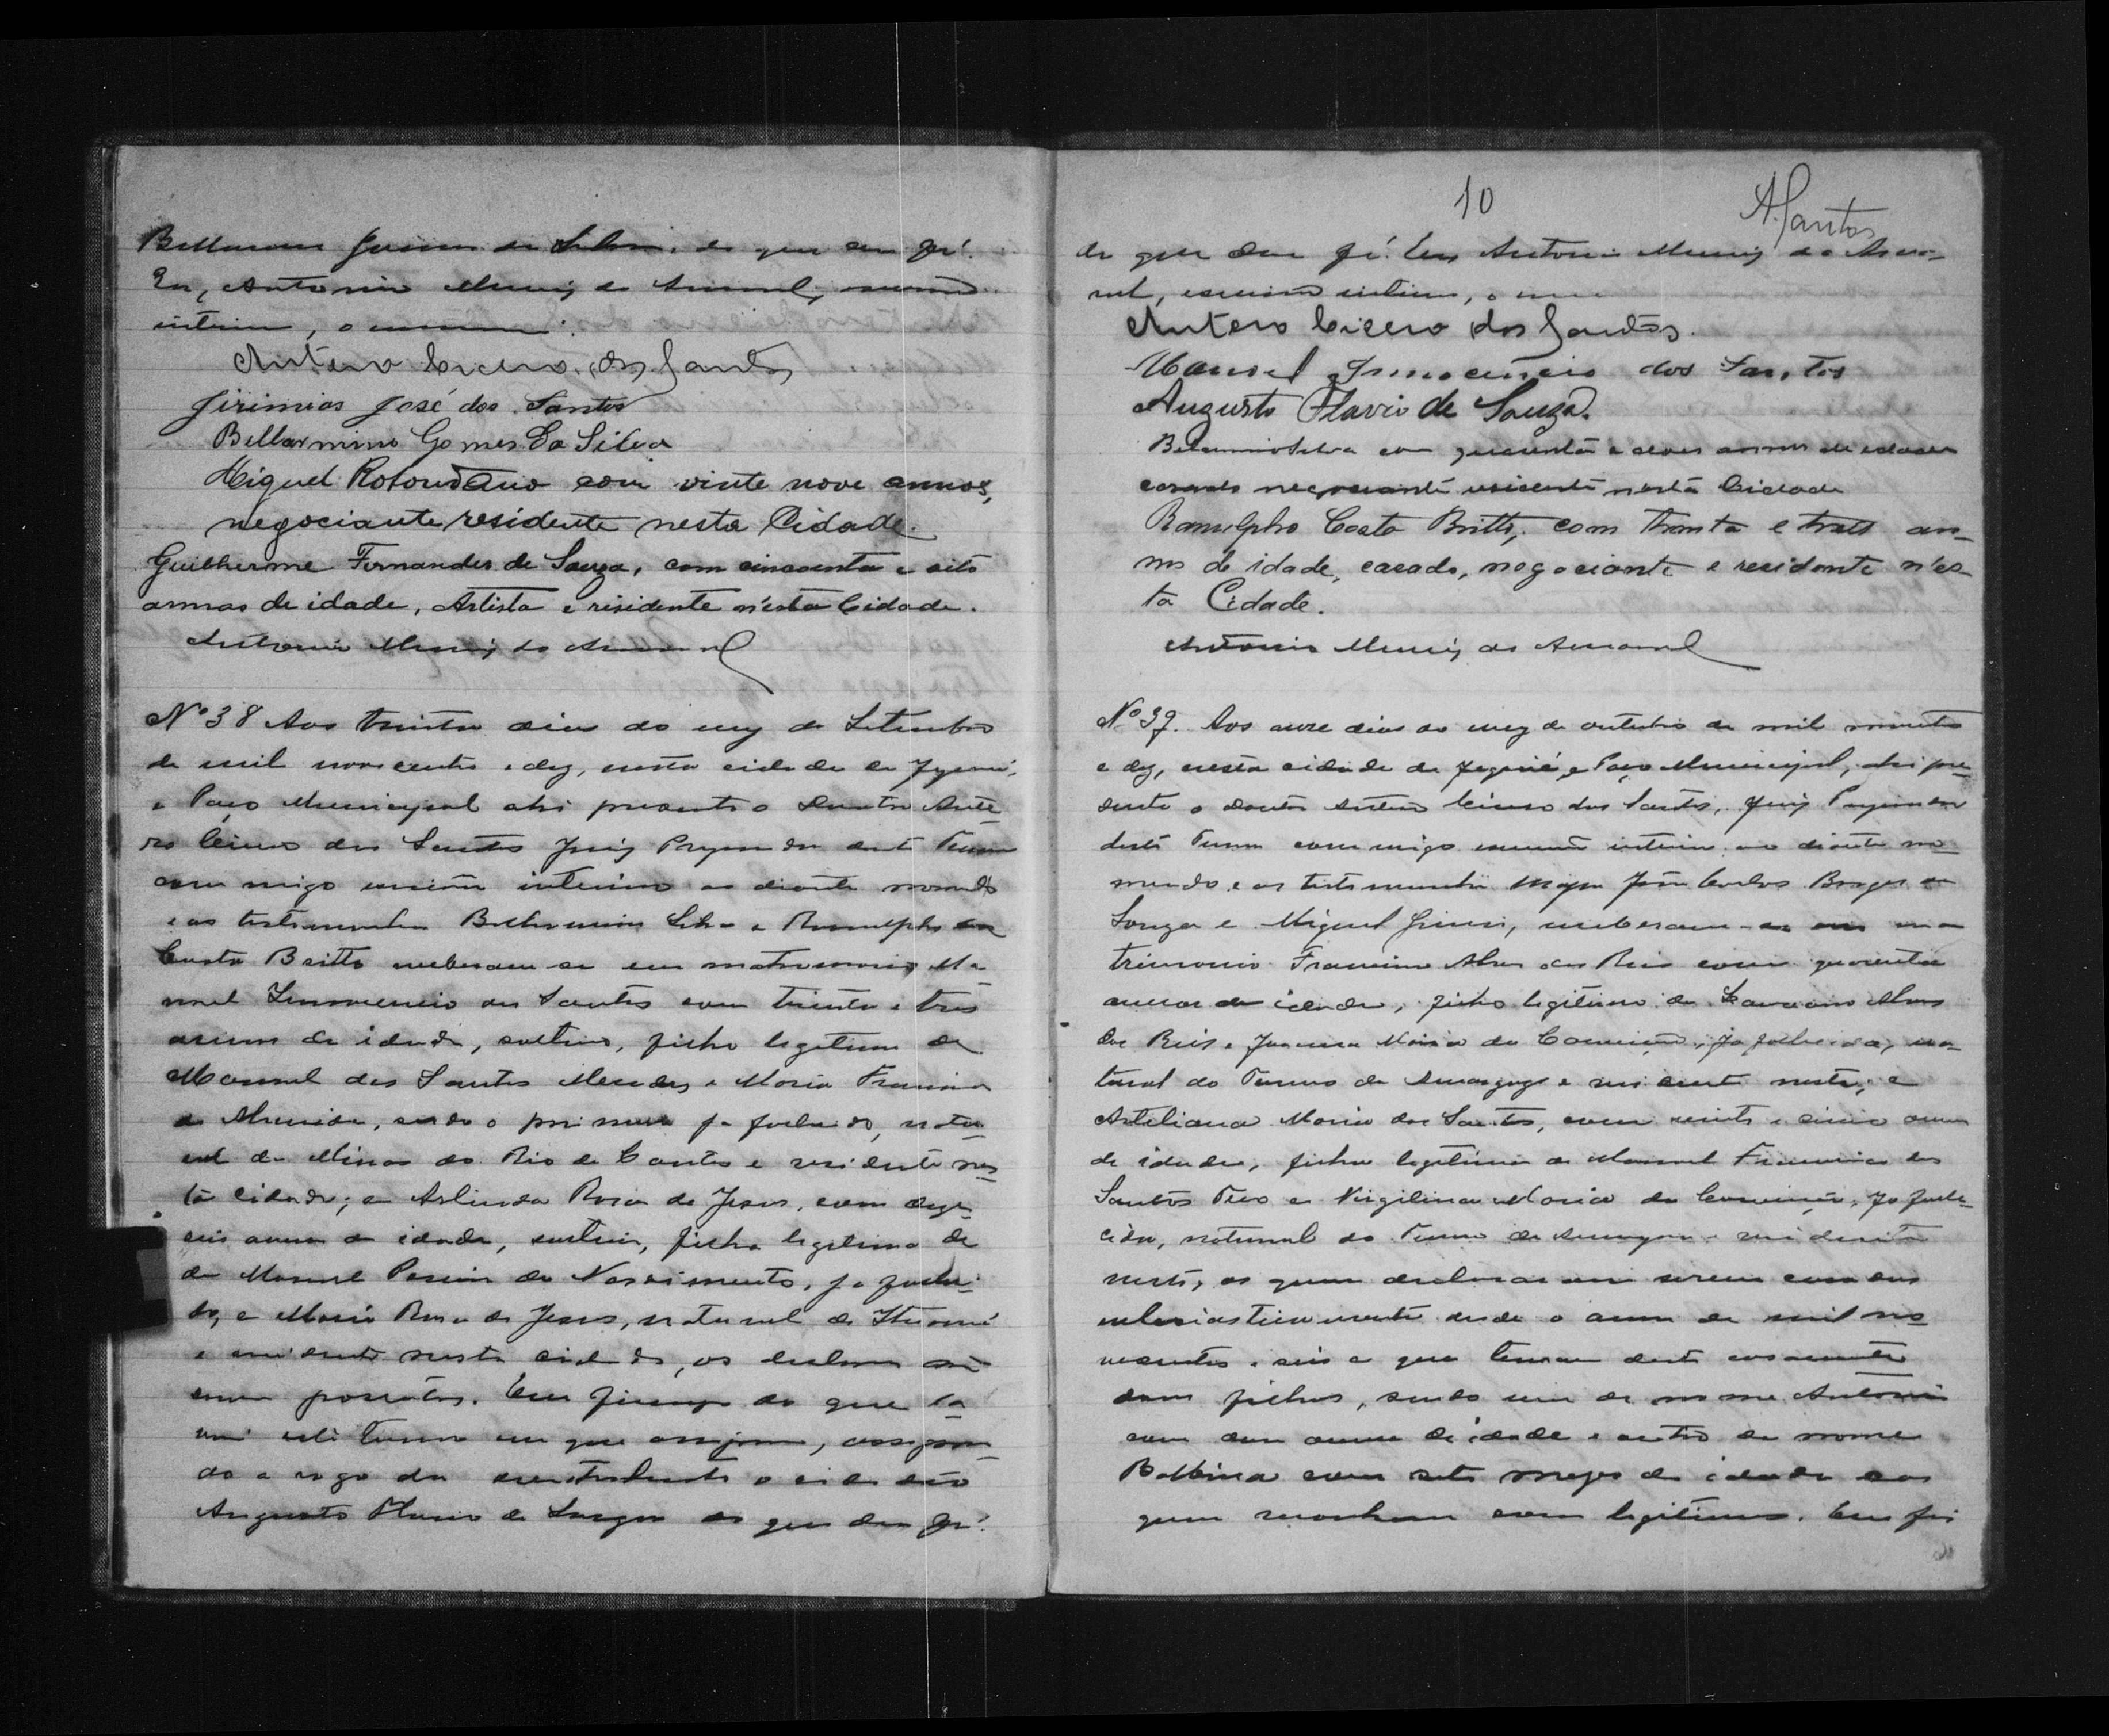 Bellarmino Gomes da Silva, do que dou fé.
Eu, Antonio Muniz do Amaral, escrivão
interino, o escrevi.
Antero Cicero dos Santos
Jirimias José dos Santos
Bellarmino Gomes Da Silva
Miguel Rotondano com vinte nove annos,
negociante, residente nesta Cidade.
Guilherme Fernandes de Souza, com cincoenta e oito
annos de idade, Artista e risidente n'esta Cidade.
Antonio Muniz do Amaral
Nº 38 Aos trinta dias do mez de Setembro
de mil novecentos e dez, nesta cidade de Jequié,
e Paço Municipal ahi presente o Doutor Ante-
ro Cicero dos Santos Juiz Preparador deste Termo
commigo escrivão interino ao diante nomeado
e as testemunhas Bellarmino Silva e Ranulpho da
Costa Britto receberam-se em matrimonio Ma-
noel Innocencio dos Santos com trinta e tres
annos de idade, solteiro, filho legitimo de
Manoel dos Santos Mendes e Maria Francisca
de Almeida, sendo o primeiro ja fallecido, natu-
ral de Minas do Rio de Contas e residente nes-
ta cidade; e Arlinda Rosa de Jesus, com deze-
seis annos de idade, solteira, filha legitima de
de Manoel Pereira do Nascimento, ja falleci-
do, e Maria Rosa de Jesus, natural de Ituassú
e residente nesta cidade, os
. Em firmeza do que la-
vrei este termo em que assignam, assignan-
do a rogo da contrahente o cidadão
Augusto Flavio de Souza do que dou fé.
10
ASantos
do que dou fé. Eu, Antonio Muniz do Ama-
ral, escrivão interino, o
Antero Cicero dos Santos.
Manoel Innocencio dos Santos
Augusto Flavio de Souza.
Belarmino Silva com quarenta e annos de edade
casado negociante residente nesta Cidade
Ranulpho Costa Britto, com trinta e tres an-
nos de idade, casado, negociante e residente n'es-
ta Cidade.
Antonio Muniz do Amaral
Nº 39. Aos onze dias do mez de outubro de mil novecentos
e dez, nesta cidade de Jequié, e Paço Municipal, ahi pre-
sente o doutor Antero Cicero dos Santos, Juiz Preparador
deste Termo commigo escrivão interino ao diante no-
meado e as testemunhas Major João Carlos Borges de
Souza e Miguel, receberam-se em ma-
trimonio Francisco Alves dos Reis com quarenta
annos de idade, filho legitimo de Alves
dos Reis e Joanna Maria da Conceição, ja fallecida, na-
tural do Termo de Amargosa e residente neste, e
Maria dos Santos, com vinte e cinco annos
de idade, filha legitima de Manoel Francisco dos
Santos e Virgilina Maria da Conceição, ja falle-
cida, natural do Termo de Amargosa e residente
neste, os quaes declararam serem casados
ecclesiasticamente desde o anno de mil no-
vecentos e seis e que tiveram deste casamento
dous filhos, sendo um de nome Antonio
com dous annos de idade e outro de nome
Balbina com sete mezes de idade aos
quaes reconhecem como legitimos. Em fir